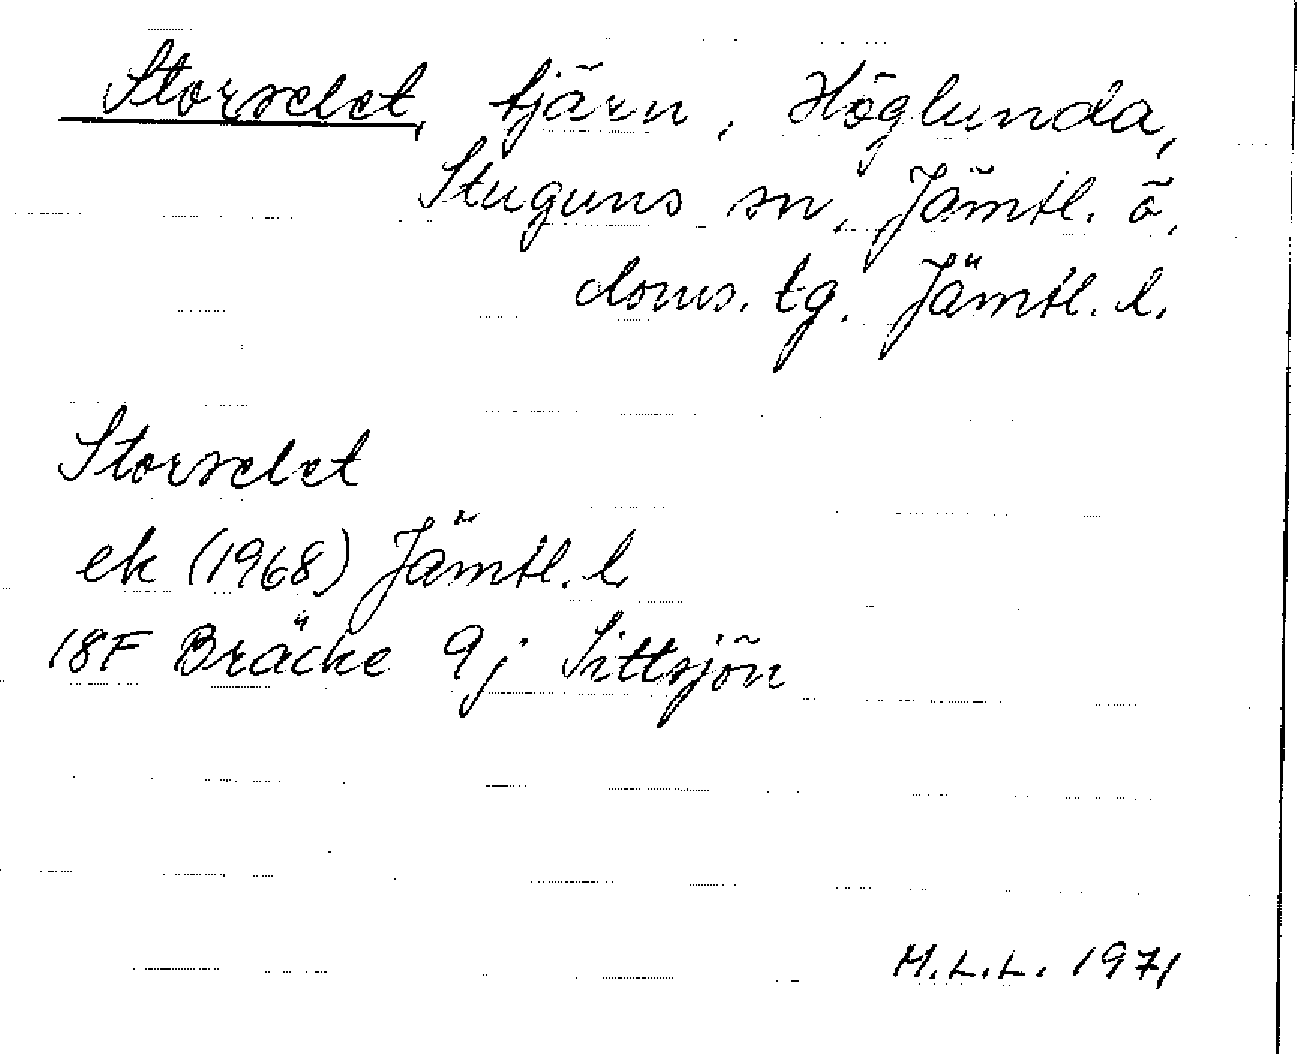 Storselet, tjärn, Höglunda,
Stuguns sn, Jämtl. ö.
doms. tg. Jämtl. l.
Storselet
ek (1968) Jämtl. l
18F Bräcke 9j Sittsjön
M.L.L. 1971